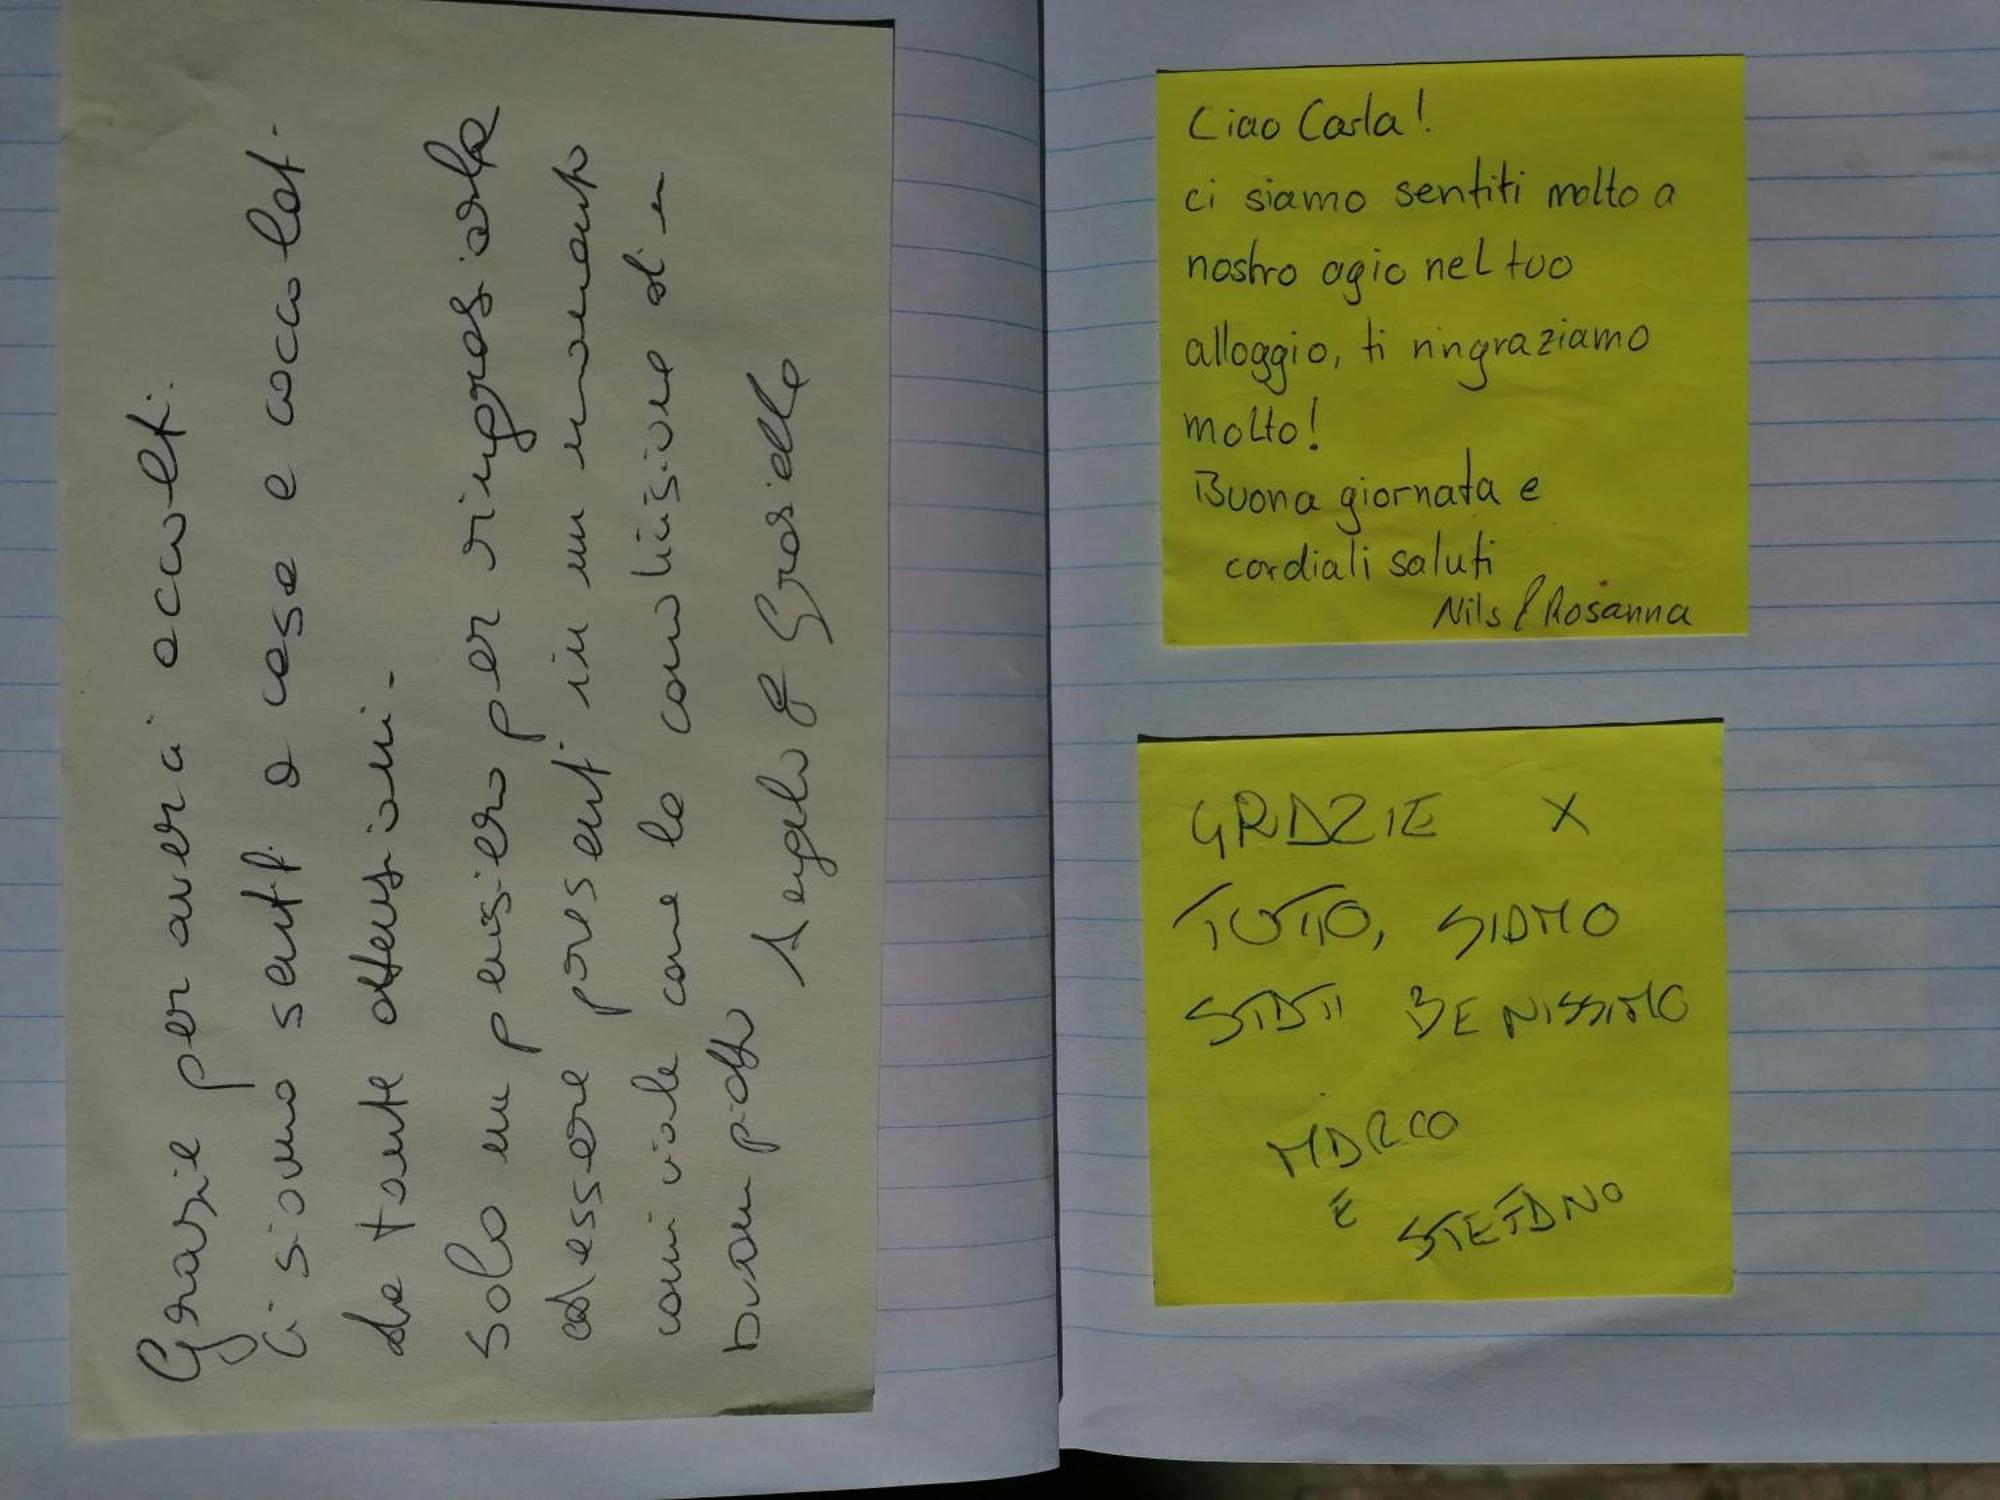 Grazie per averci accolti.
Ci siamo sentiti a casa e coccolati.
da tante attenzioni.
Solo un pensiero per ringraziarla
ed essere presenti in un momento
conviviale come la condivisione di un
buon piatto
Angelo & Graziella
Ciao Carla!
ci siamo sentiti molto a
nostro agio nel tuo
alloggio, ti ringraziamo
molto!
Buona giornata e
cordiali saluti
Nils & Rosanna
GRAZIE X
TUTTO, SIAMO
STATI BENISSIMO
MARCO
E
STEFANO